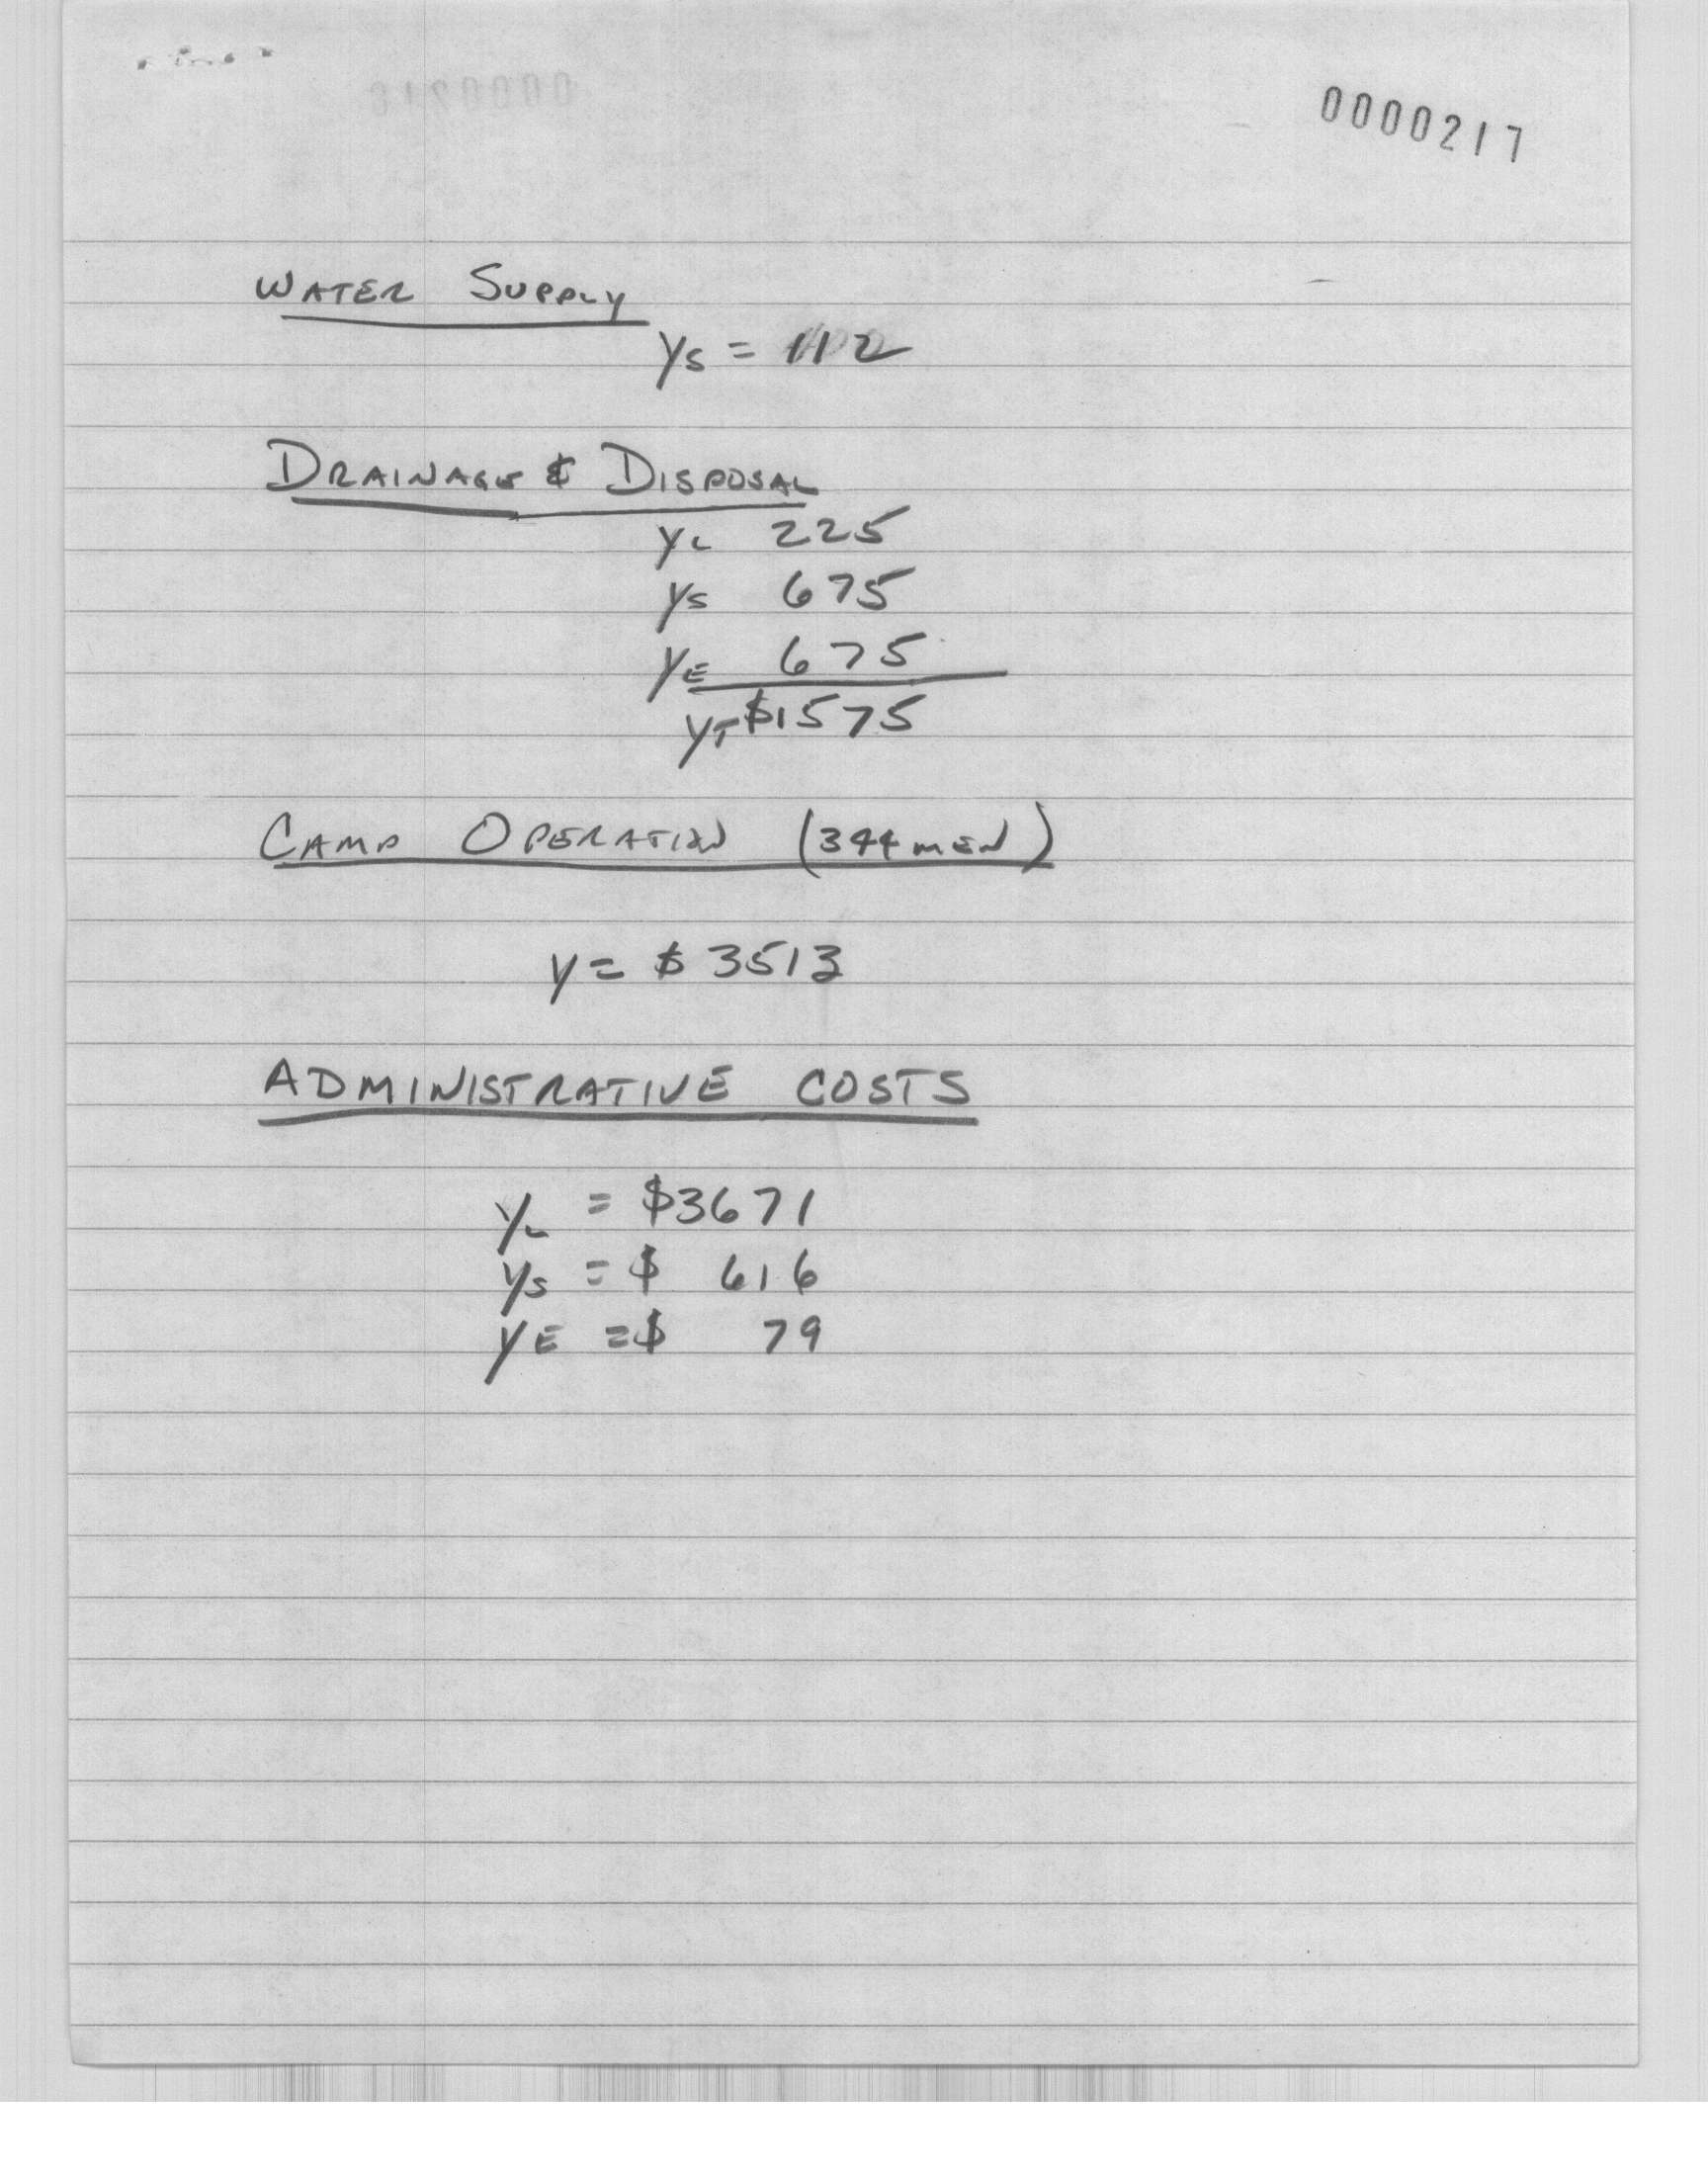 0000217
WATER SUPPLY
YS = 112
DRAINAGE & DISPOSAL
YL 225
YS 675
YE 675
YT $1575
CAMP OPERATION (344 MEN)
Y = $ 3513
ADMINISTRATIVE COSTS
YL = $3671
YS = $ 616
YE = $ 79